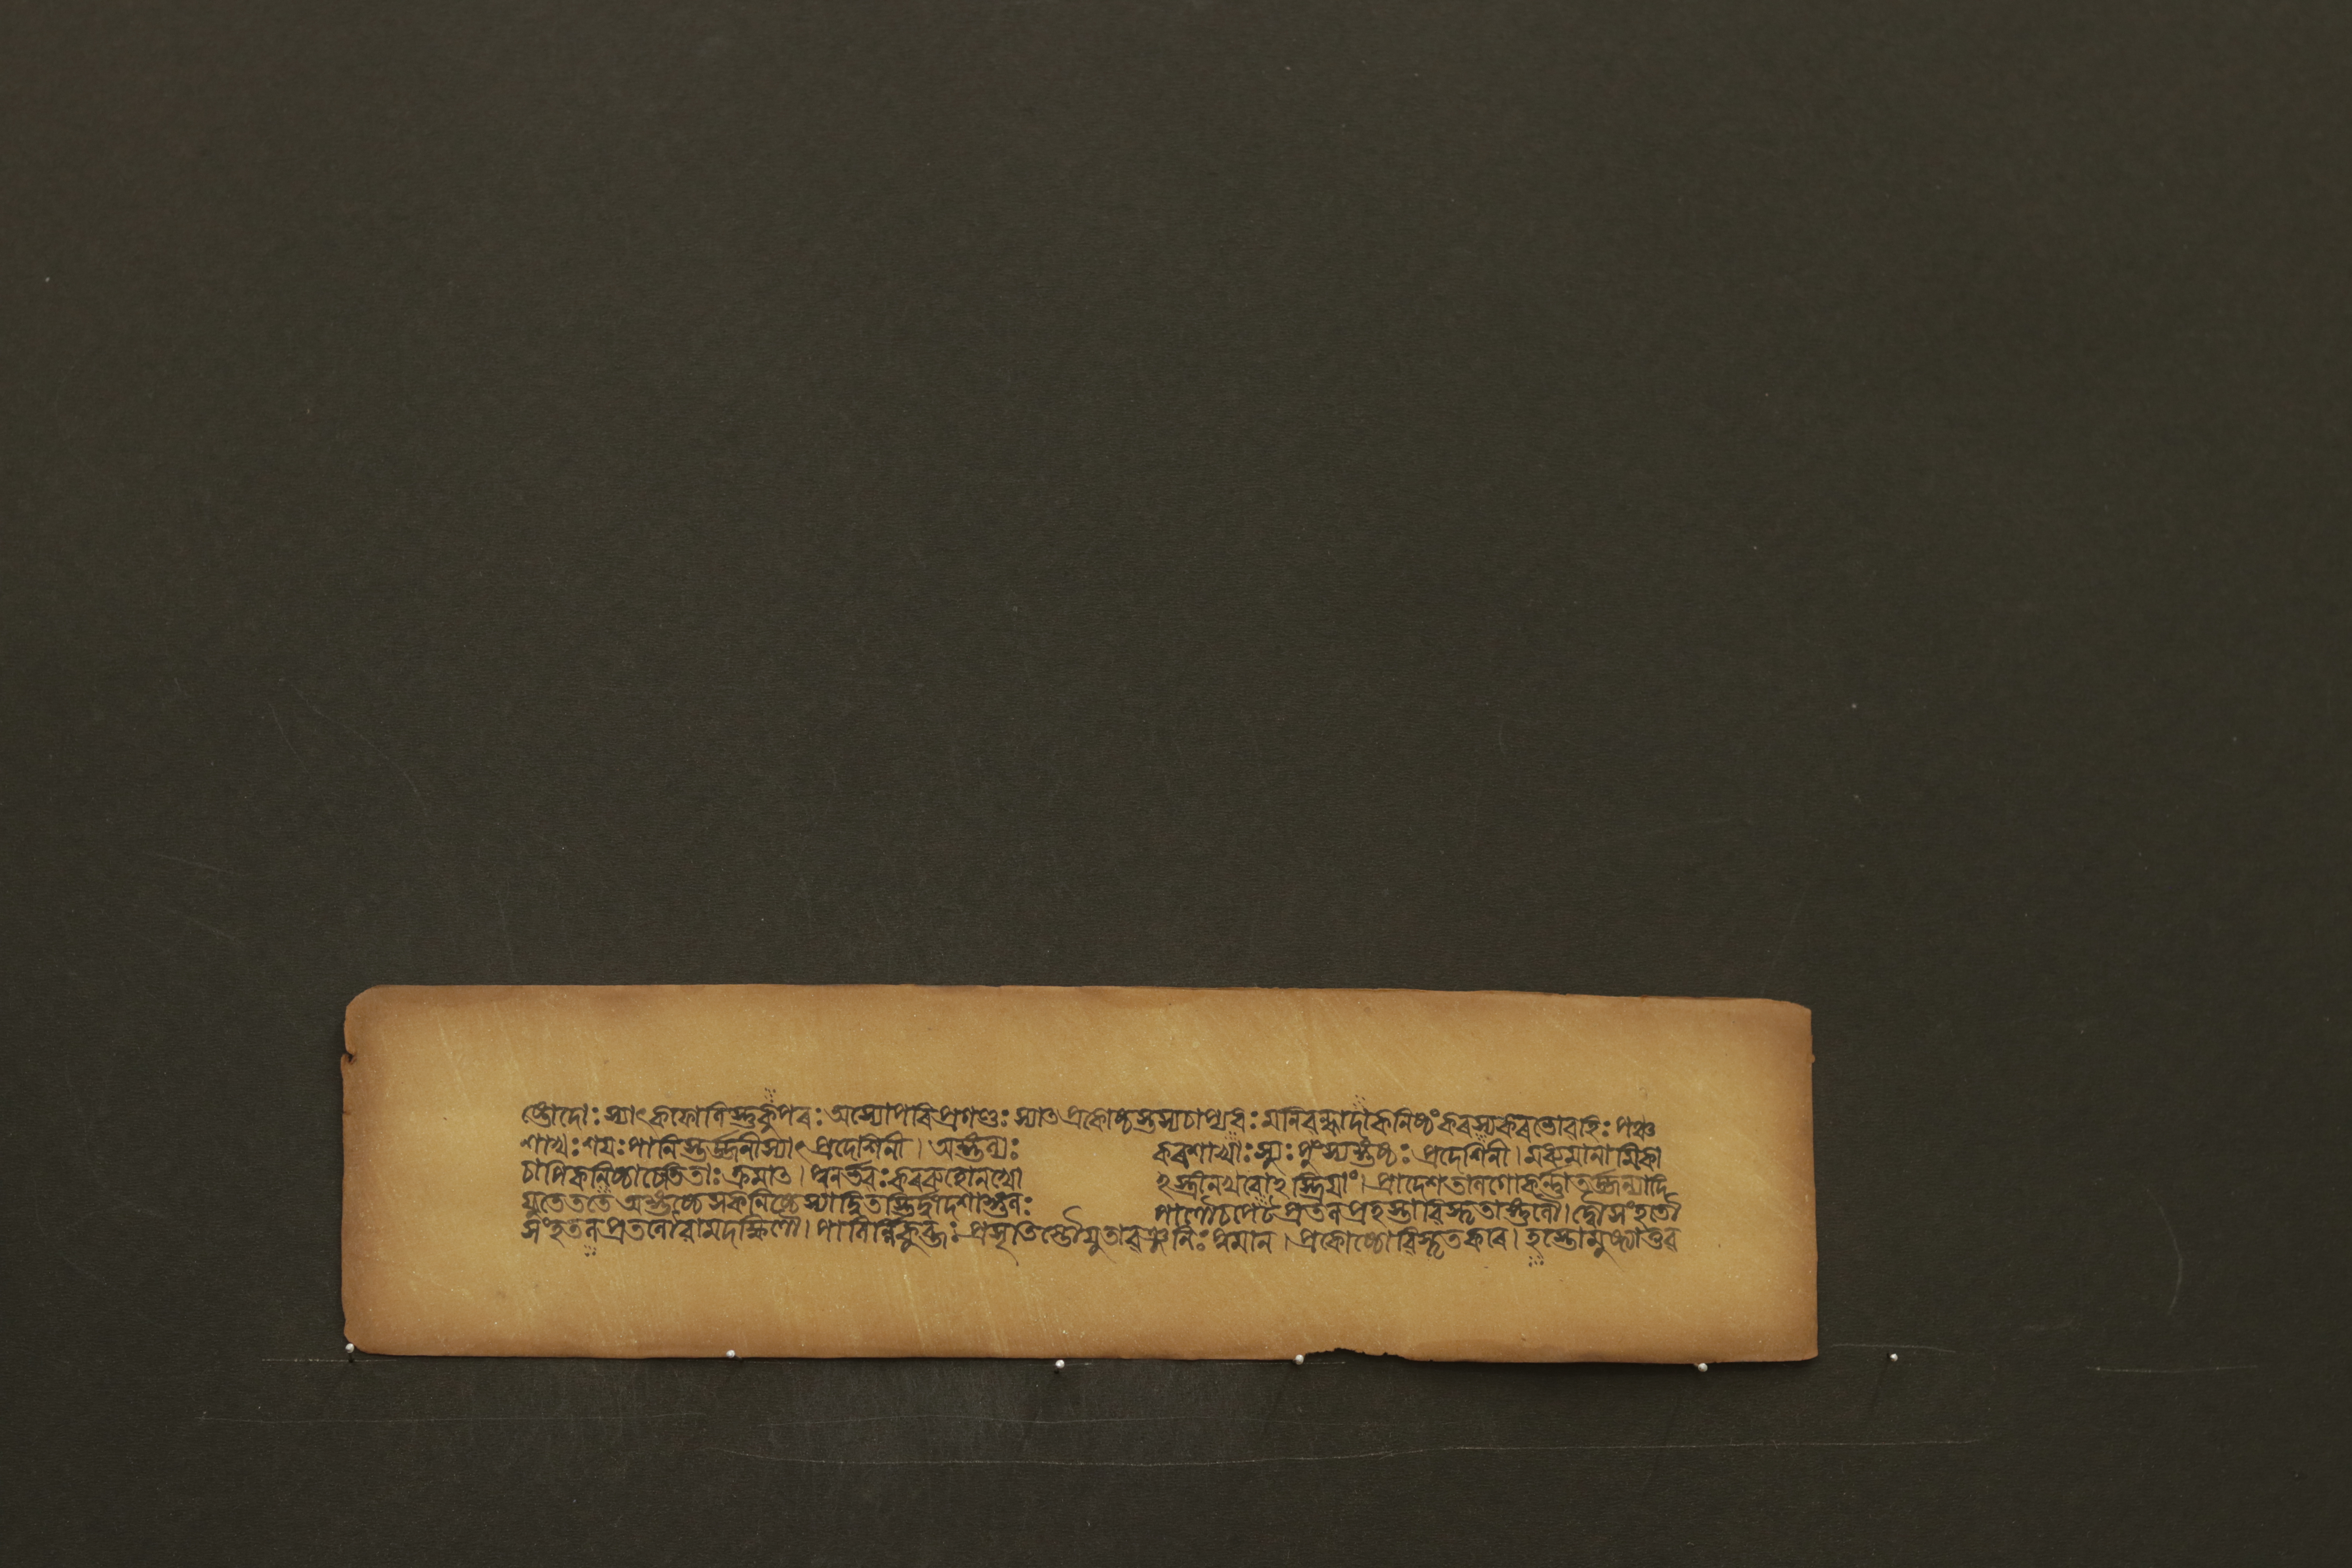 ষ্টোদোঃস্যাৎকফোনিস্তুকুৰ্পৰঃঅস্যোপৰিপ্ৰগণ্ডঃস্যাত্প্ৰকোষ্ঠস্তস্যচাপ্যধঃমনিৱন্ধাদাকনিষ্ঠংকৰস্যকৰভোৱহিঃপঞ্চ
শাখঃশয়ঃপানিস্তৰ্জ্জনীস্যাৎপ্ৰদেশিনী।অঙ্গুল্যঃ কৰশাখাঃস্যুঃপুংস্যঙ্গুষ্ঠঃপ্ৰদেশিনী।মধ্যমানামিকা
চাপিকনিষ্ঠাচেতিতাঃক্ৰমাত্।পুনৰ্ভৱঃকৰৰুহোনখো হস্ত্ৰীনখৰোহস্ত্ৰিয়াং।প্ৰাদেশতালগোকৰ্ন্নাতৰ্জ্জন্যাদি
য়ুতেততেঅঙ্গুষ্ঠেসকনিষ্ঠেস্যাদ্বিতস্তিৰ্দ্বাদশাঙ্গুলঃ পাণৌচপেটপ্ৰতলপ্ৰহস্তাৱিস্তৃতাঙ্গুলৌ।দ্বৌসংহতৌ
সংহতলপ্ৰতলৌৱামদক্ষিণৌ।পানিৰ্ন্নিকুব্জঃপ্ৰসৃতিস্তৌয়ুতাৱঞ্জলিঃপুমান।প্ৰকোষ্ঠেৱিস্তৃতকৰে।হস্তোমুষ্ট্যাতুৱ